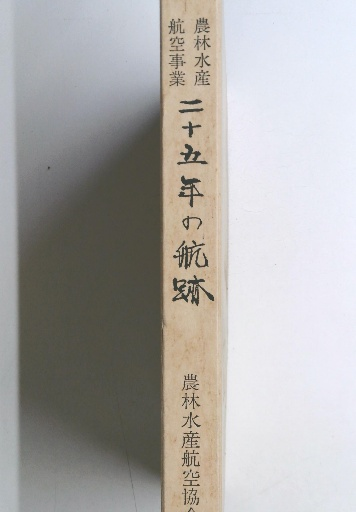 農林水産
航空事業
二十五年の航跡
農林水産航空協会